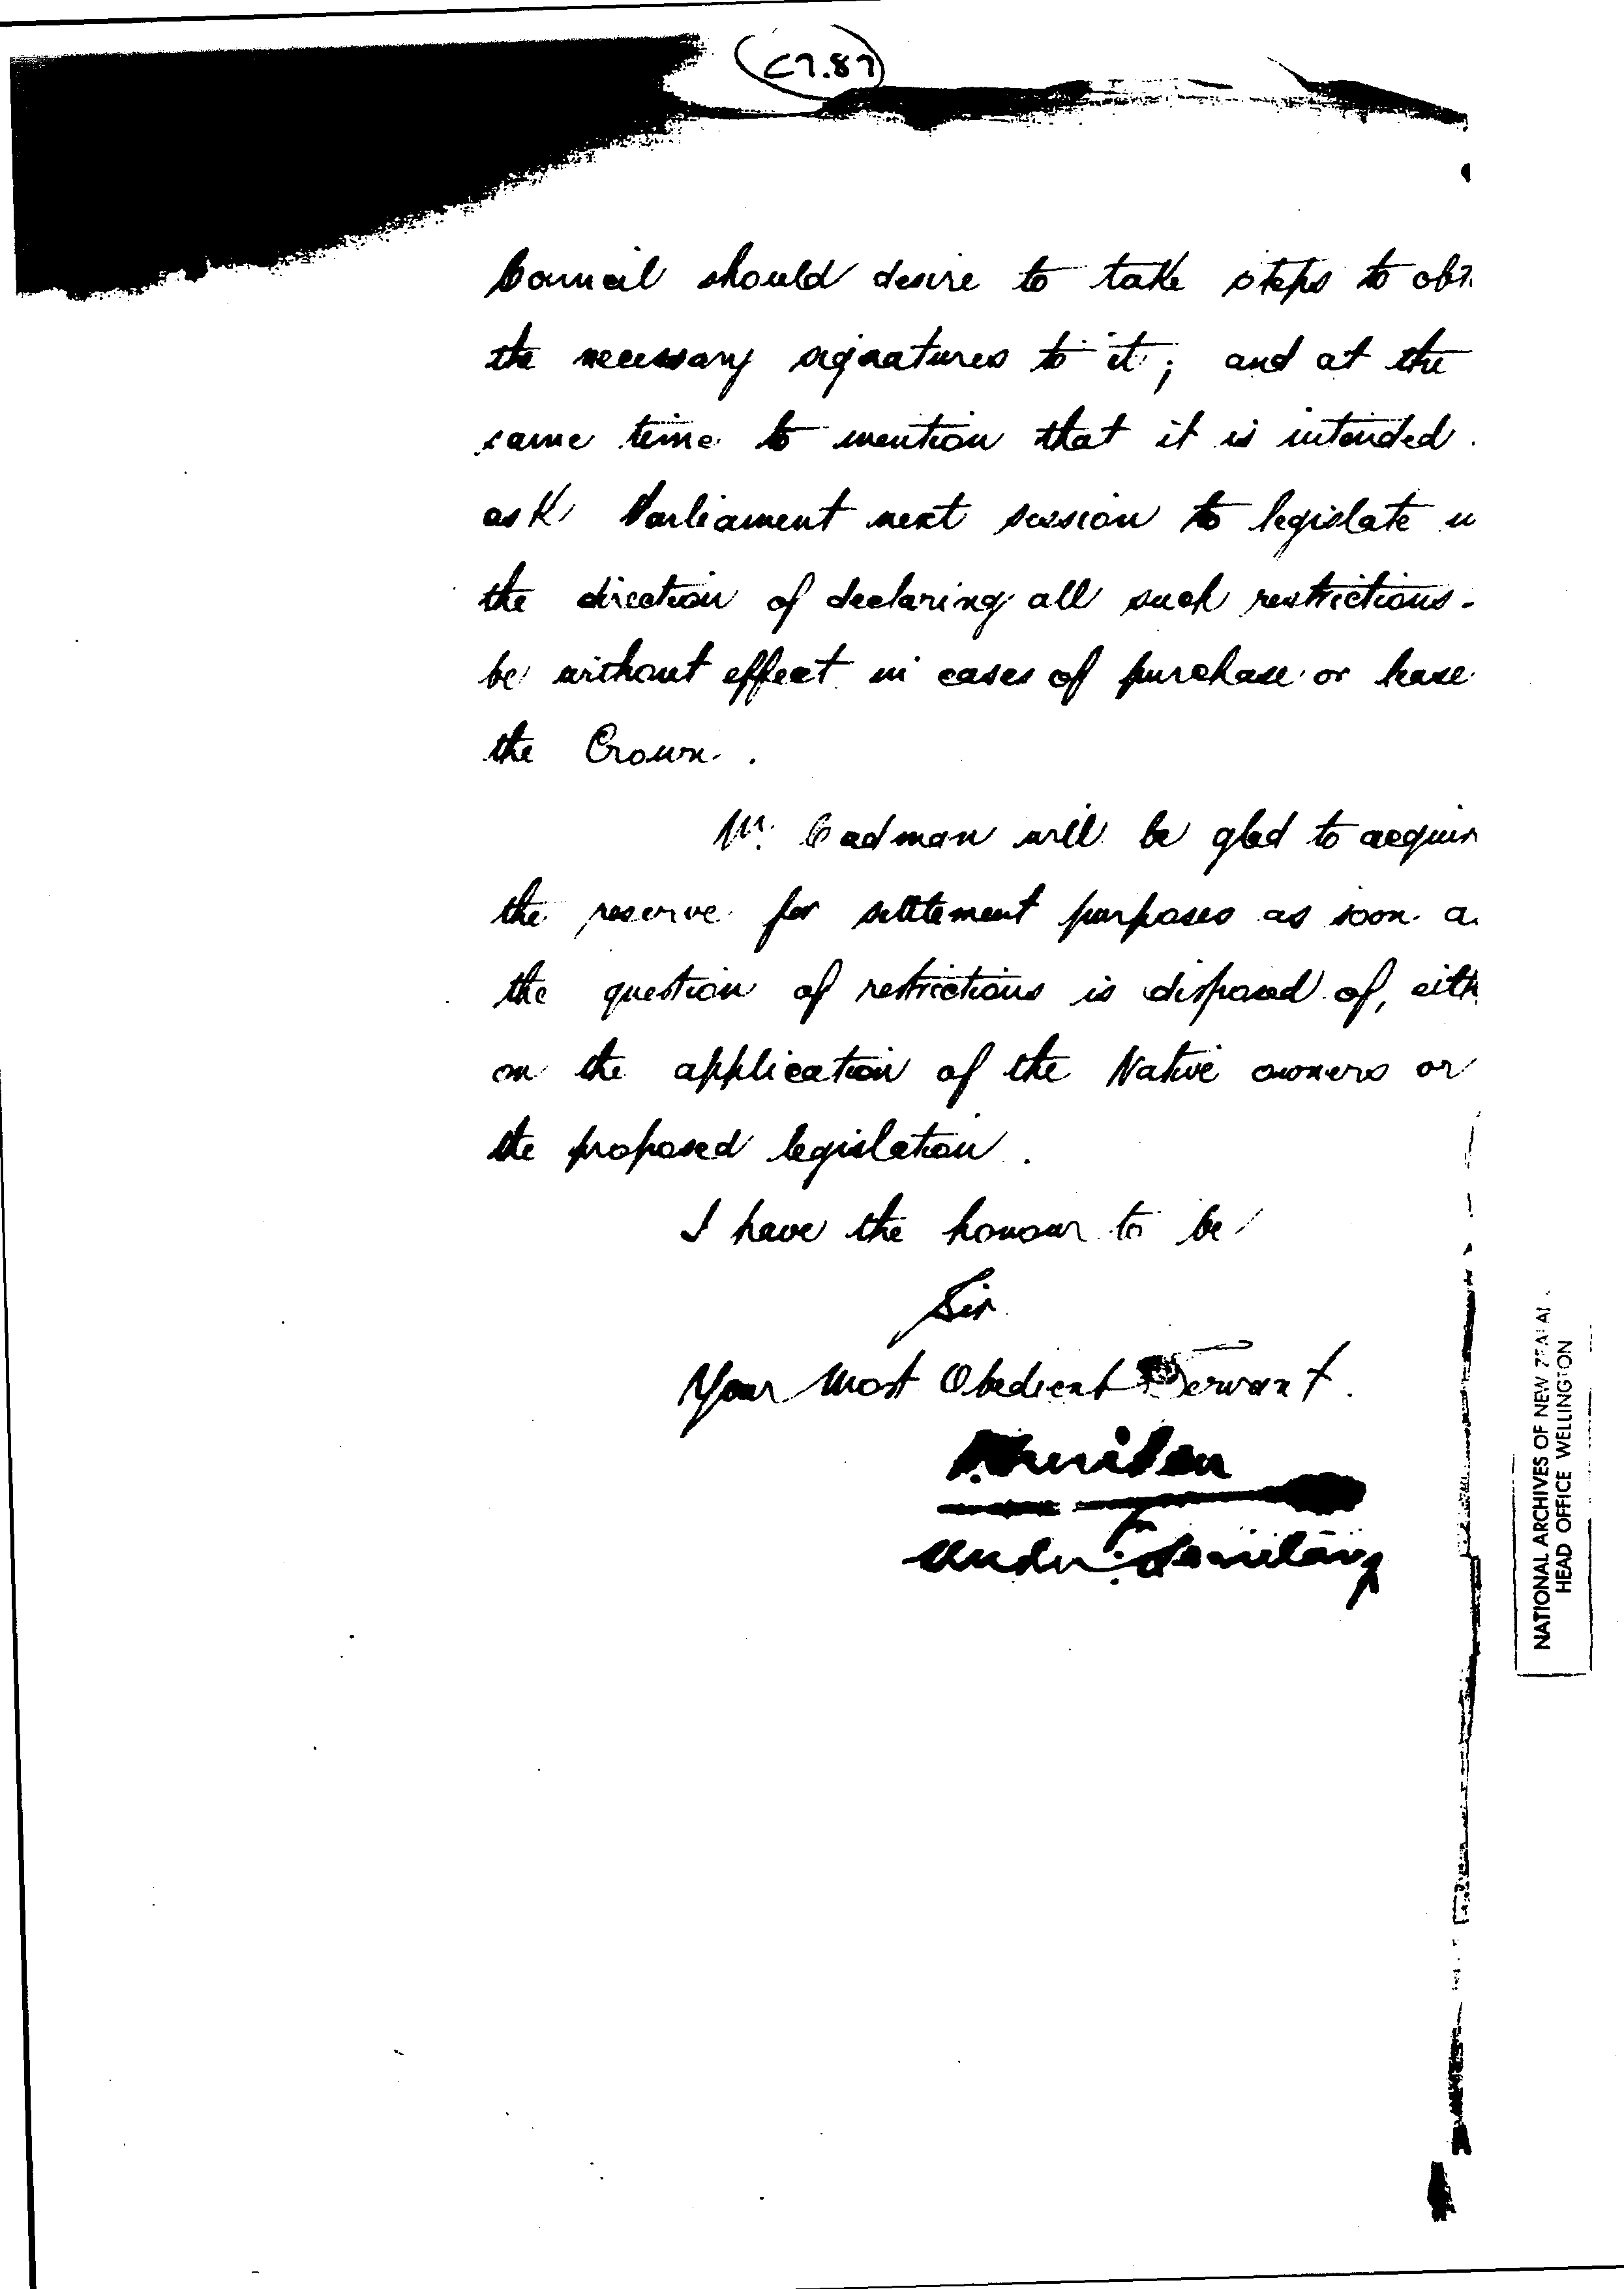 C7.87
Council should desire to take steps to obt
the necessary signatures to it; and at the
same time to mention that it is intended
ask Parliament next session to legislate
the direction of declaring all such restrictions
be without effect in cases of purchase or lease
the Crown.
Mr. Cadman will be glad to acquir
the reserve for settlement purposes as soon a
the question of restrictions is disposed of, eith
on the application of the Native owners or
the proposed legislation.
I have the honour to be
Sir
Your Most Obedient Servant.
Under Secretary
NATIONAL ARCHIVES OF NEW ZEALAN
HEAD OFFICE WELLINGTON